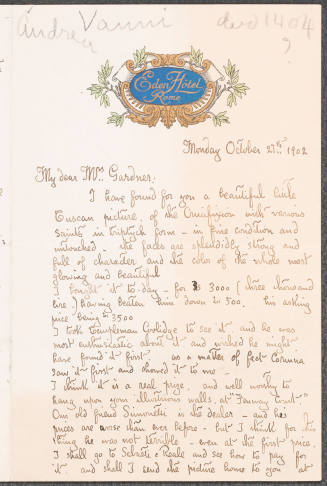 Andrea Vanni died 1404
?
Eden Hôtel
Rome
Monday October 27th 1902
My dear Mrs. Gardner,
I have found for you a beautiful little
Tuscan picture, of the Crucifixion with various
saints in triptych form - in fine condition and
untouched - the faces are splendidly strong and
full of character and the color of the whole most
glowing and beautiful
I bought it to-day - for 3000 (three thousand
lire) having beaten him down to 500, his asking
price being 3500
I took Templeman Coolidge to see it, and he was
most enthusiastic about it and wished he might
have found it first, as a matter of fact Corinna
saw it first and showed it to me -
I think it is a real prize, and well worthy to
hang upon your illustrious walls, at "Fenway Court"
Our old friend Simonetti is the dealer - and his
prices are worse than ever before - but I think for this
thing he was not terrible - even at the first price.
I shall go to Sebasti e Reale and see how to pay for
it and shall I send the picture home to you at